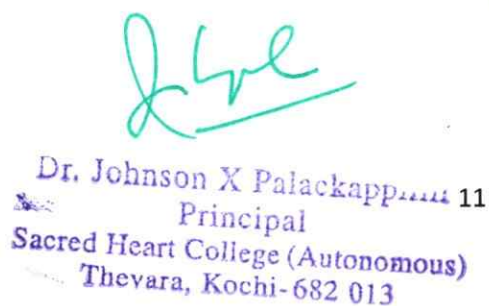 Dr. Johnson X 11
Principal
Sacred Heart College (Autonomous)
Thevara, Kochi-682 013